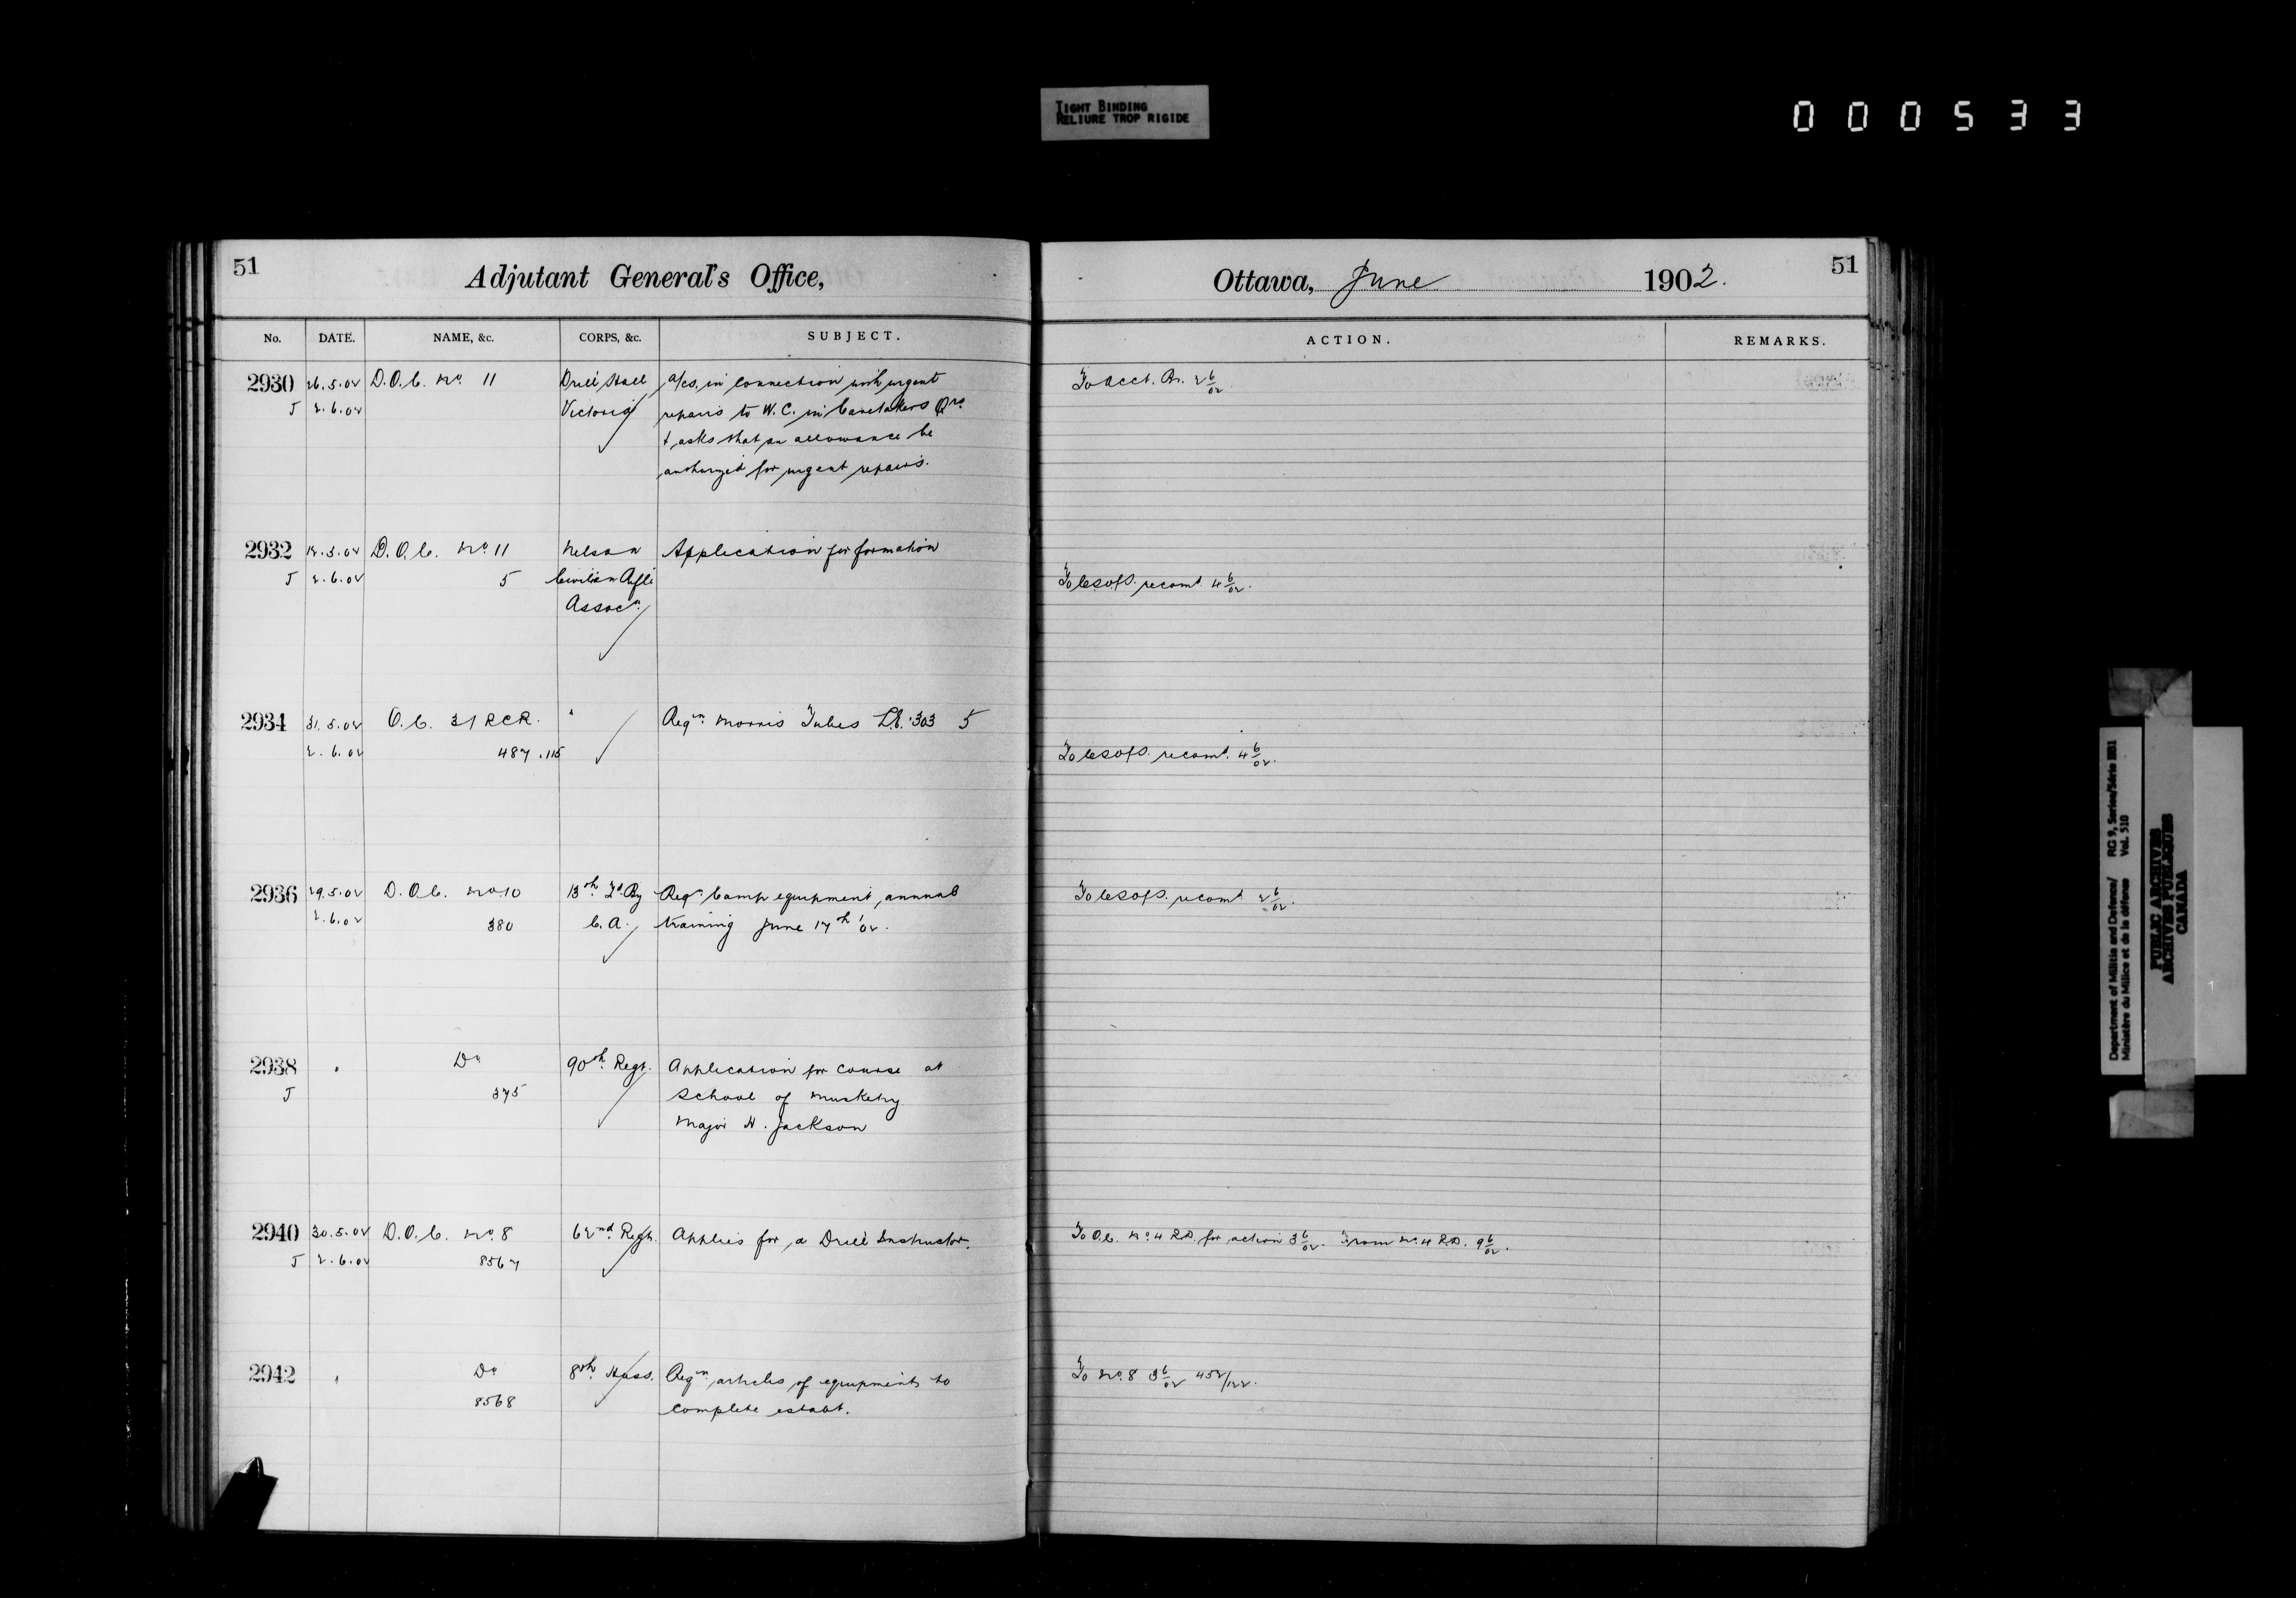 TIGHT BINDING
RELIURE TROP RIGIDE
000533
51
Adjutant General's Office,
No. DATE. NAME, &c. CORPS, &c. SUBJECT.
2930 26.5.02 D.O.C. No. 11 Drill Hall a/cs. in connection with urgent
J 2.6.02 Victoria repairs to W.C. in Caretakers Qrs
& asks that an allowance be
authorized for urgent repairs.
2932 D.O.C. No. 11 Nelson Application for formation
J 2.6.02 5 Civilian Rifle
Assocn.
2934 31.5.02 O.C. 31 RCR. " Reqn. Morris Tubes L.E. .303 5
2.6.02 487.115
2936 29.5.02 D.O.C. No. 10 13th Fd By Reqn. Camp equipment, annual
2.6.02 380 C.A. training June 17th '02.
2938 " Do 90th Regt. Application for course at
J 375 School of Musketry
Major H. Jackson
2940 30.5.02 D.O.C. No. 8 62nd Regt. Applies for a Drill Instructor.
J 2.6.02 8567
2942 " Do 8th Huss. Reqn. articles of equipment to
8568 complete establt.
51
Ottawa, June 1902.
ACTION. REMARKS.
To Acct. Br. 2 6/02
To CSofS. recomd. 4 6/02.
To CSofS. recomd. 4 6/02.
To CSofS. recomd 2 6/02.
To O.C. No. 4 RD. for action 3 6/02. From No. 4 RD. 9 6/02.
To No. 8 3 6/02 452/122.
Department of Militia and Defence/ RG 9, Series/Série IIB1
Ministère du Milice et de la défense Vol. 510
PUBLIC ARCHIVES
ARCHIVES PUBLIQUES
CANADA